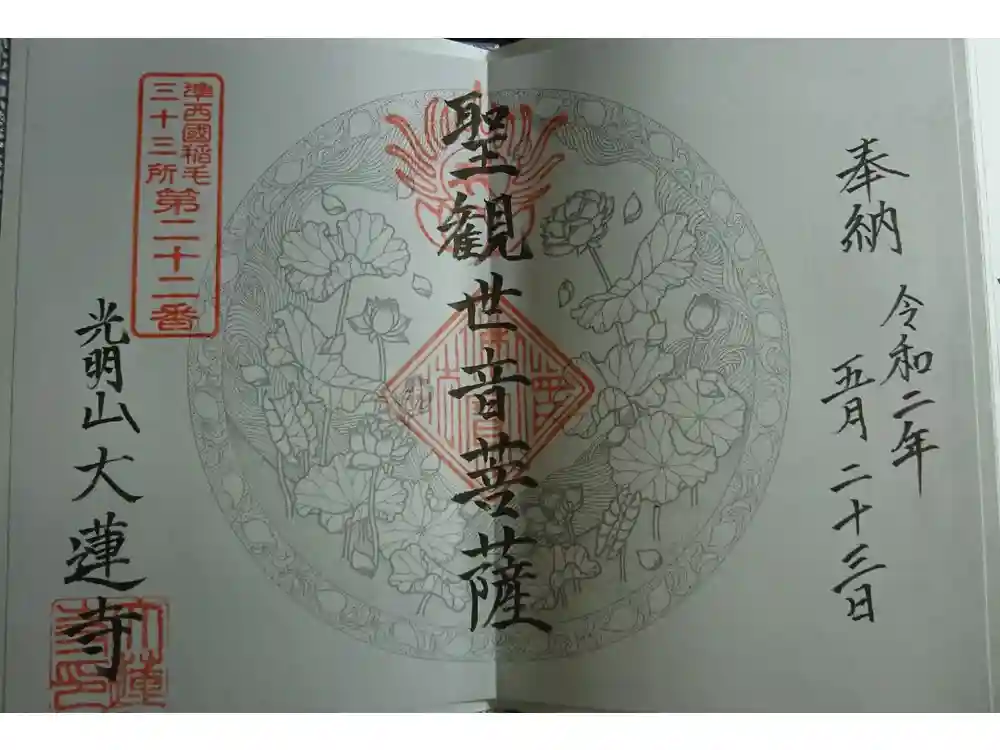 奉納
令和二年
五月二十三日
聖観世音菩薩
準西國稲毛
三十三所
第二十二番
光明山大蓮寺